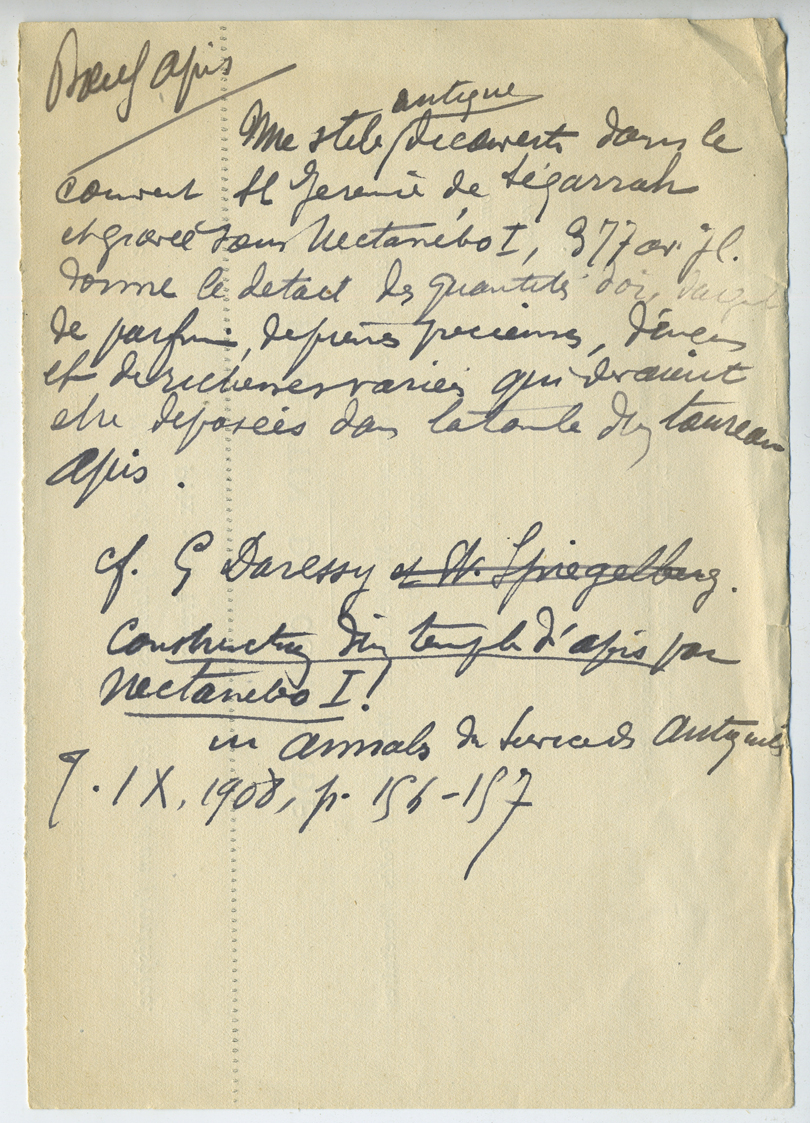 Boeuf Apis
antique
Une stele découverte dans le
couvent St Jeremie de Ségarrah
et gravée sous Nectanébo I, 377 av. J. C.
donne le detail des quantités d'or, d'argent
de parfum, de pierres precieuses, d'encens
et de richesses variées qui devaient
etre déposées dans la tombe d'un taureau
Apis.
cf. G Daressy et W. Spiegelberg.
Construction d'un temple d'apis par
Nectanebo I!
in Annales du Service des Antiquités
T. IX, 1908, p. 156-157